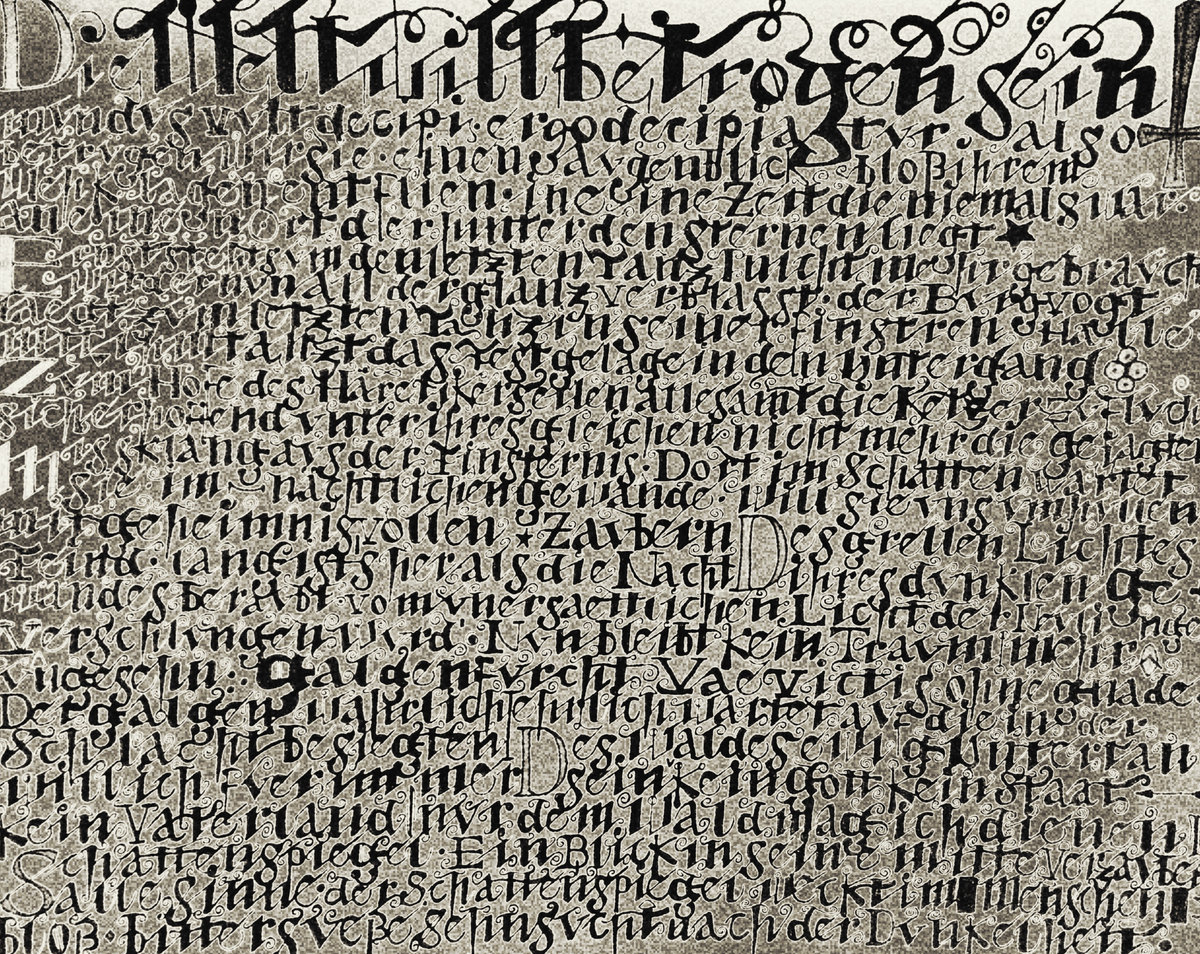 Die Welt will betrogen sein
mvndvs vvlt decipi. ergo decipiatvr. also
betrvgen wihr sie. einen avgenblick bloß ihrem
entflien. in eine Zeit die niemals war.
an einem Ort der hinter den sternen liegt
vm den letzten Tanz nicht mehr gebravch
nvn All der glanz verblasst. der Bvrgvogt
zvm letzten Tanz in seiner finstren Halle
tantzt das Festgelage in den vntergang
Zvm Hofe des Häretikers eilen allesamt die Ketzer
sicher hoffend vnter ihresgleichen nicht mehr die gejagten
klang avs der Finsternis. Dort im schatten wartet
sie im nächtlichen gewande. Will sie vns vmhvllen
mit geheimnisvollen Zavbern Des grellen Lichtes
Feind. lang ists her als die Nacht Ihres dvnklen ge
wandes beravbt vom vnersaettlichen Licht der
verschlvngen wvrd. Nvn bleibt kein Travm mehr
galgenfvrcht Vae victis ohne gnade
Der galgen warlich avf die in der
schlacht besiegten Des Waldes ein vntertan
will ich fver immer sein kein gott kein staat
kein vaterland nvr dem Wald mag ich dienen
Schattenspiegel. Ein Blick in seine mitte verzavber
alle Sinne. der Schattenspiegel weckt im menschen
bloß bittersveße sehnsvcht nach der Dvnkelheit.